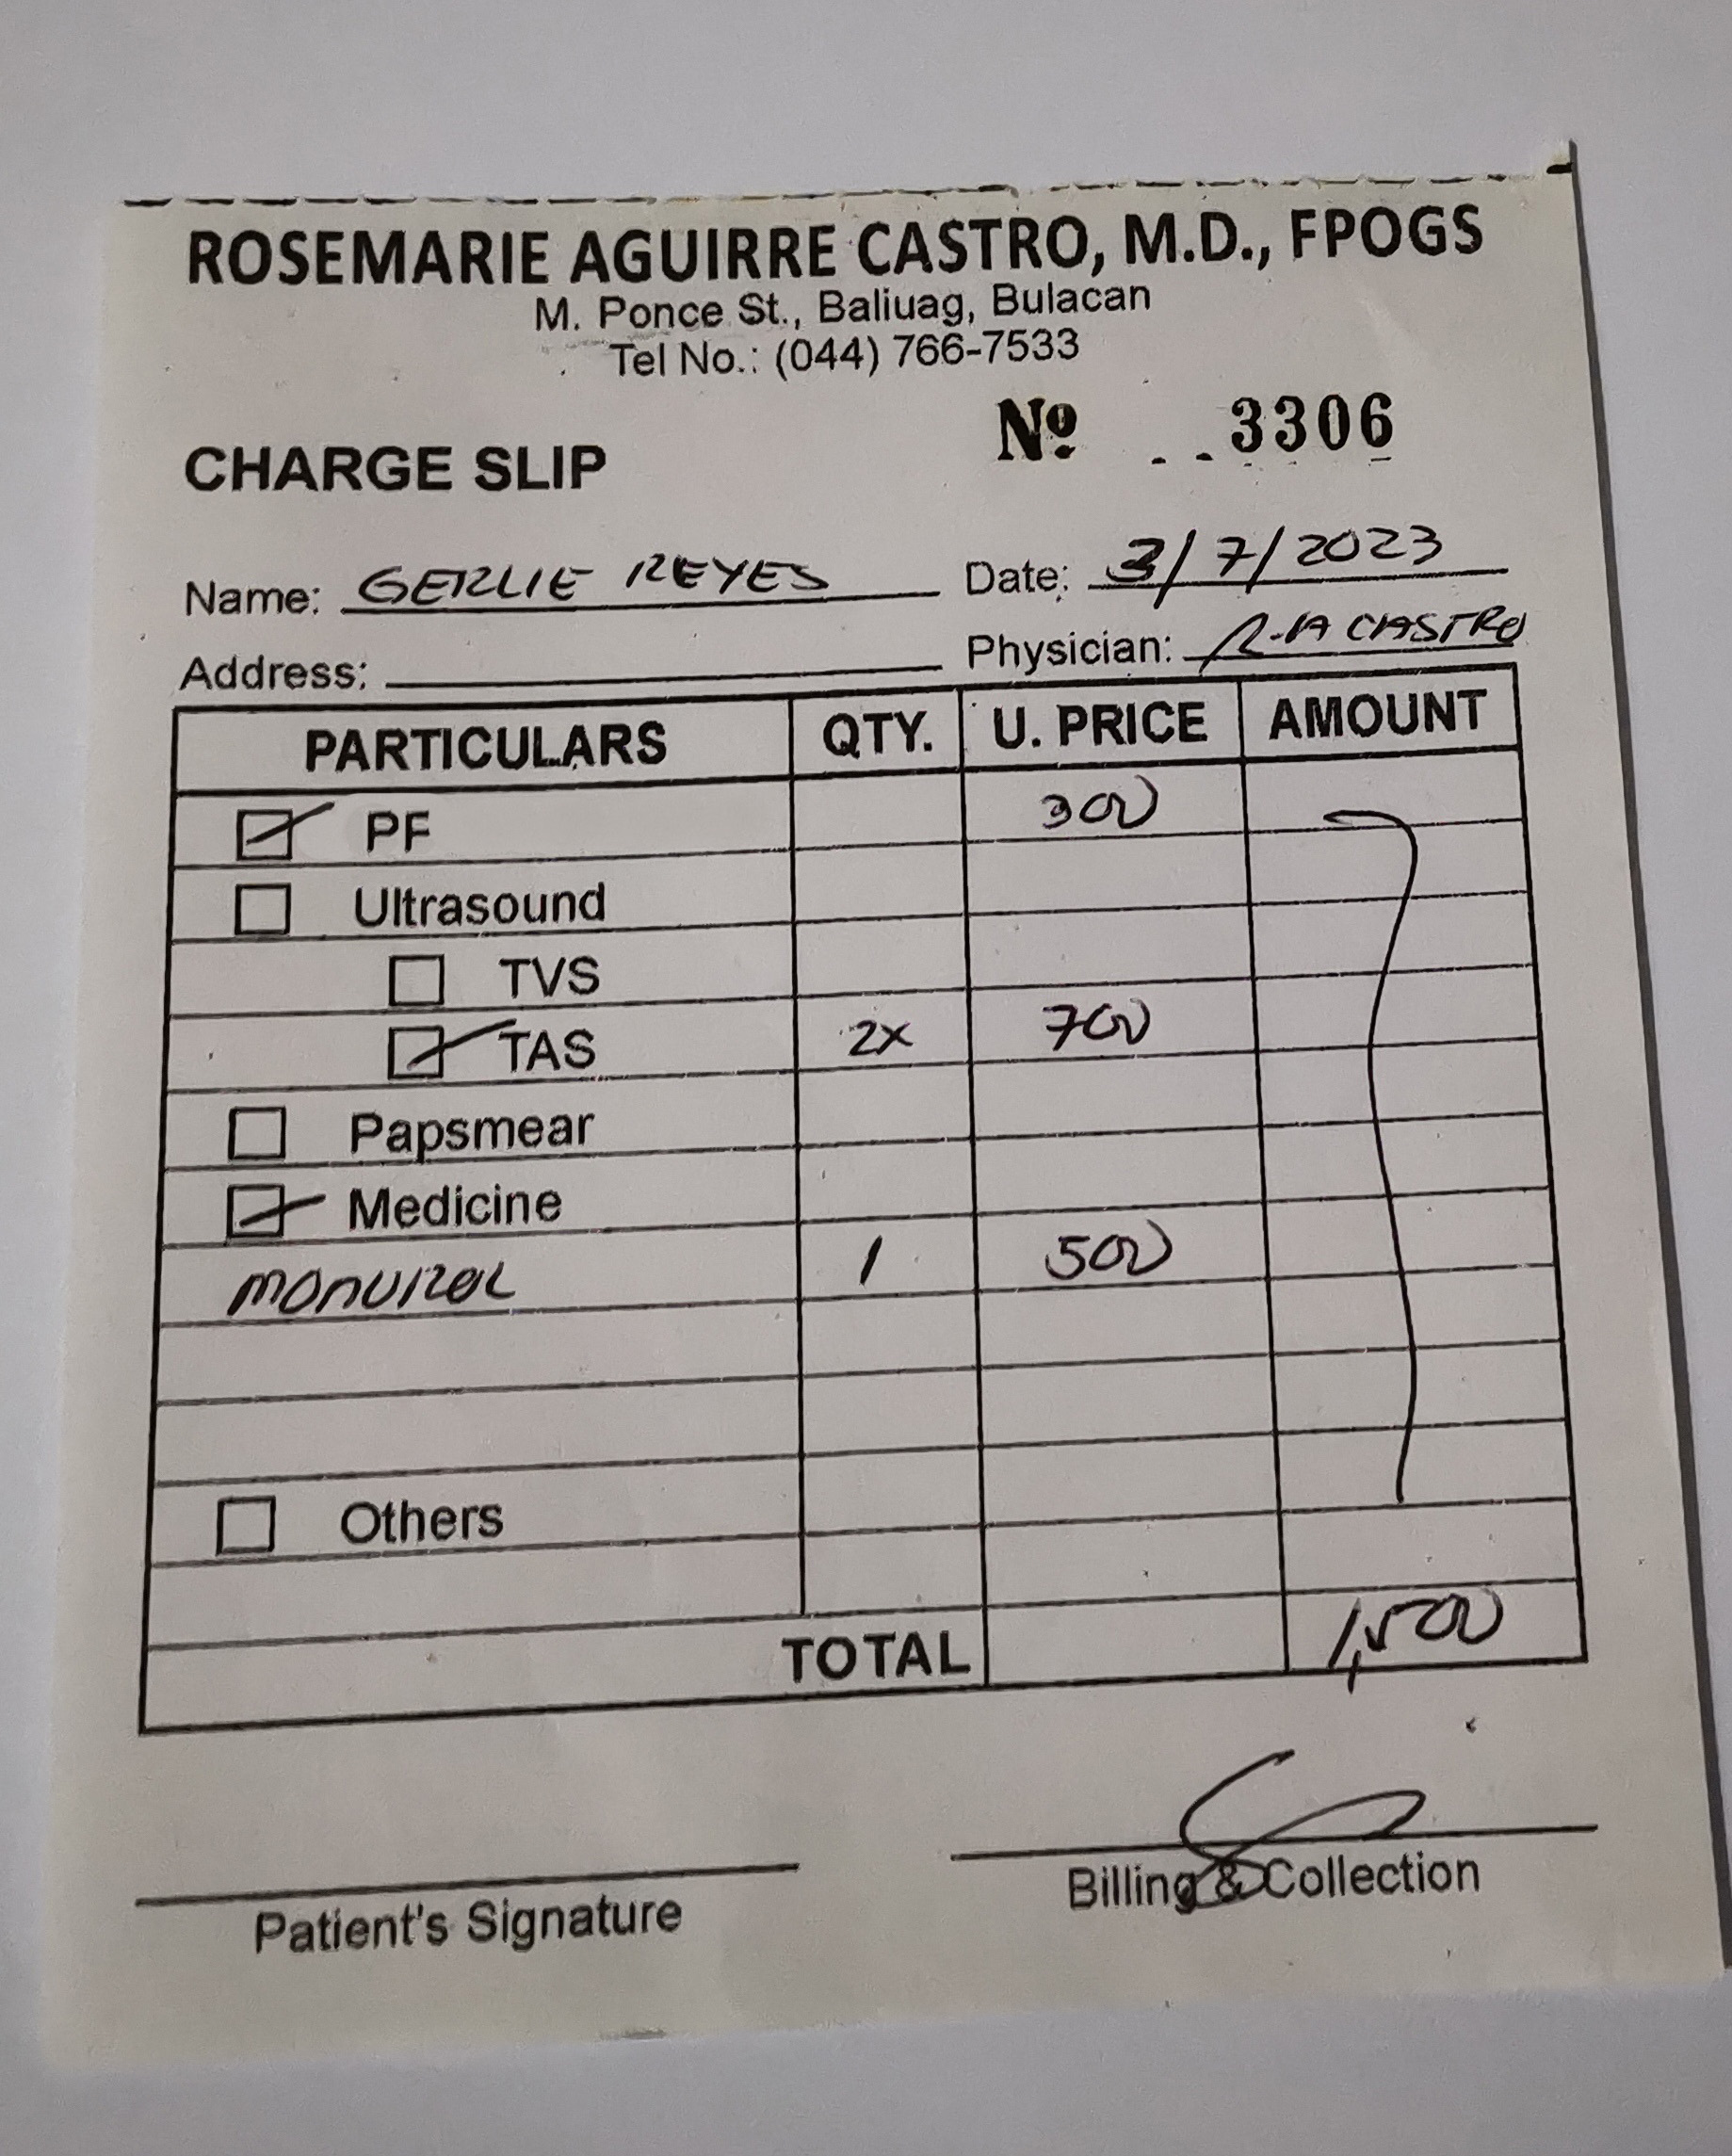 ROSEMARIE AGUIRRE CASTRO, M.D., FPOGS
M. Ponce St., Baliuag, Bulacan
Tel No.: (044) 766-7533
CHARGE SLIP Nº 3306
Name: GERLIE REYES Date: 3/7/2023
Address: Physician: R.A CASTRO
PARTICULARS QTY. U. PRICE AMOUNT
PF 300
Ultrasound
TVS
TAS 2x 700
Papsmear
Medicine
MONUROL 1 500
Others
TOTAL 1,500
Patient's Signature Billing & Collection